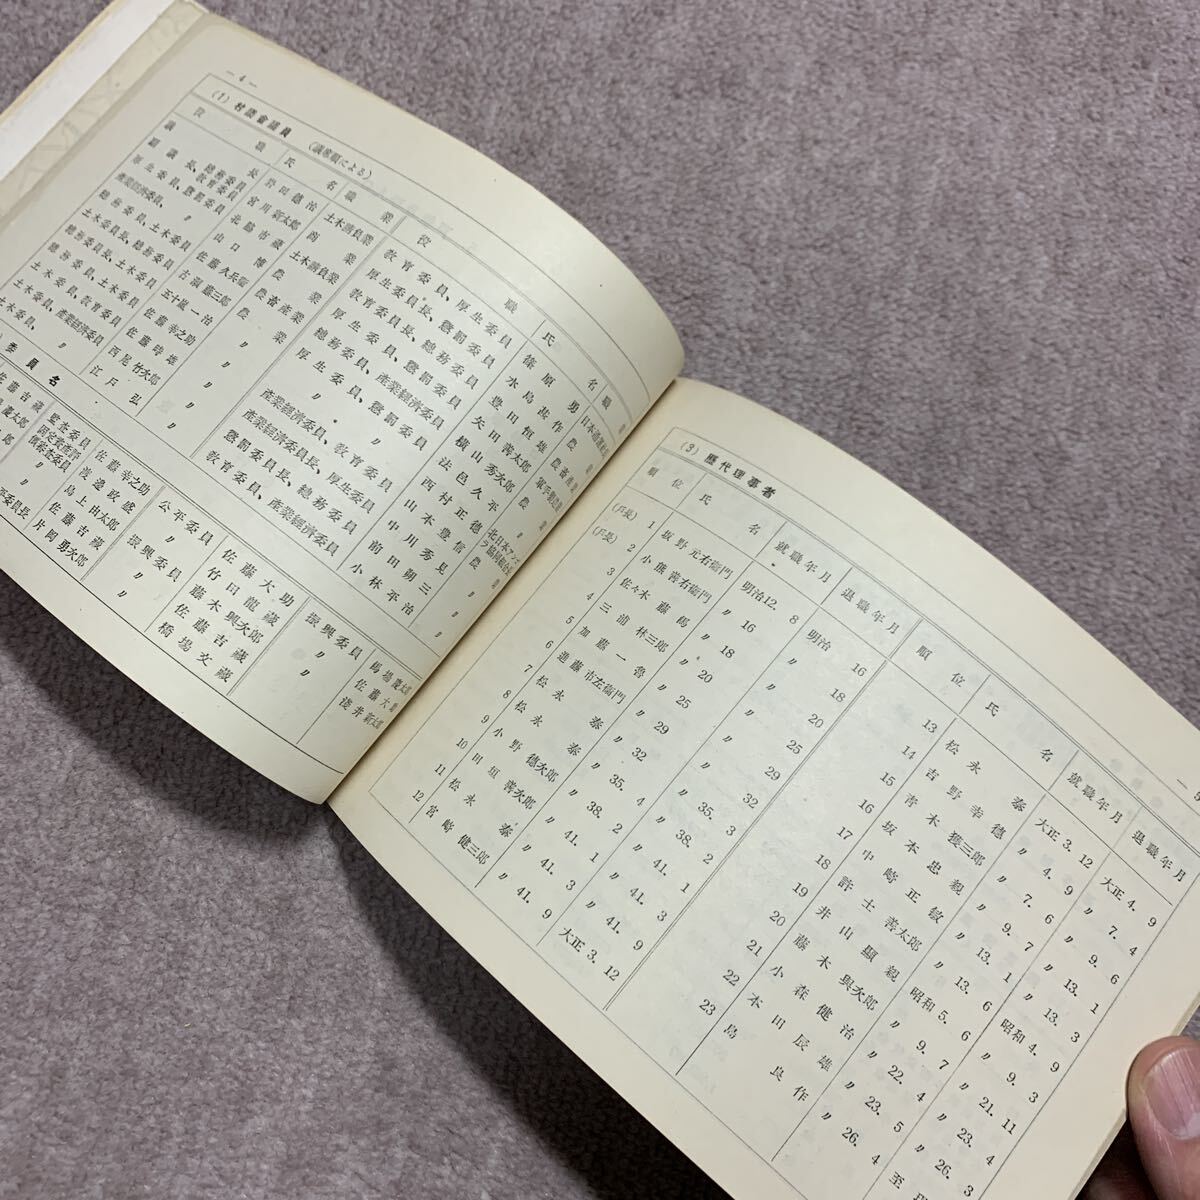 — 4 —
(1) 村議會議員 (議席順による)
役職 氏名 職業 役職 氏名 職業
議長 岩田德治 土木請負業
副議長、總務委員 教育委員 宮川新太郎 商業
厚生委員、懲罰委員 北脇市藏 土木請負業
產業經濟委員、〃 山口博 農業
土木委員 佐藤久兵衞 農畜產業
總務委員、土木委員 古瀨藤三郎 農業
土木委員長、總務委員 五十嵐一治 〃
總務委員長、土木委員 佐藤幸之助 〃
總務委員、教育委員 佐藤時雄 〃
土木委員、產業經濟委員 西尾竹次郎 〃
土木委員、〃 江戸弘 〃
教育委員、厚生委員 篠原勇
厚生委員長、懲罰委員 水島甚作 農
教育委員長、總務委員 豊田恒雄
厚生委員、懲罰委員 矢田善太郎
總務委員、產業經濟委員 橫山秀次郎
厚生委員、懲罰委員 法邑久平 農
〃 〃 西村正德 〃
產業經濟委員、教育委員 山本豊信
產業經濟委員長、厚生委員 中川秀見 農
懲罰委員長、總務委員 前田朔三 〃
教育委員、產業經濟委員 小林平治 〃
委員名
佐藤吉藏 監査委員 佐藤幸之助 公平委員 佐藤大助 振興委員 馬場慶太郎
慶太郎 固定資產評價審査委員 渡邊政盛 〃 竹田龍藏 〃 佐藤大助
〃 島上由太郎 振興委員 藤木與次郎 〃 淺井新太郎
〃 佐藤吉藏 〃 佐藤吉藏
片岡勇次郎 〃 橋場文藏
(3) 歷代理事者
順位 氏名 就職年月 退職年月 順位 氏名 就職年月 退職年月
(戸長) 1 坂野元右衞門 明治12. 8 明治 16
(戸長) 2 小熊善右衞門 〃 16 〃 18
3 佐々木藤碼 〃 18 〃 20
4 三浦林三郎 〃 20 〃 25
5 加藤一魯 〃 25 〃 29
6 進藤市左衞門 〃 29 〃 32
7 松永泰 〃 32 〃 35. 3
8 松永泰 〃 35. 4 〃 38. 2
9 小野德次郎 〃 38. 2 〃 41. 1
10 田垣善次郎 〃 41. 1 〃 41. 3
11 松永泰 〃 41. 3 〃 41. 9
12 宮崎健三郎 〃 41. 9 大正 3. 12
13 松永泰 大正 3. 12 大正 4. 9
14 吉野幸德 〃 4. 9 〃 7. 4
15 青木獲三郎 〃 7. 6 〃 9. 6
16 坂本忠親 〃 9. 7 〃 13. 1
17 中崎正敏 〃 13. 1 〃 13. 3
18 許士善太郎 〃 13. 6 昭和 4. 9
19 井山顯親 昭和 5. 6 〃 9. 3
20 藤木與次郎 〃 9. 7 〃 21. 11
21 小森健治 〃 22. 4 〃 23. 4
22 本田辰雄 〃 23. 5 〃 26. 3
23 島良作 〃 26. 4 至